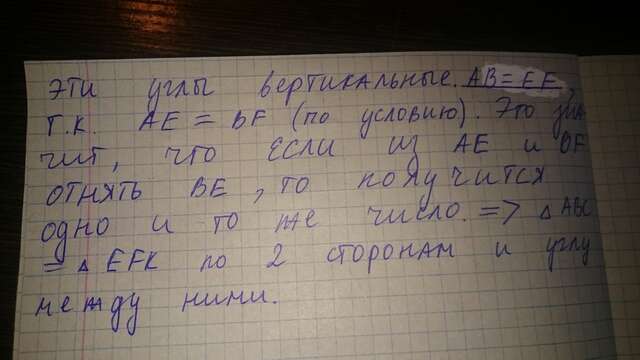 эти углы вертикальные. AB = EF,
т.к. AE = BF (по условию). Это зна
чит, что если из AE и BF
отнять BE, то получится
одно и то же число. => △ ABC
= △ EFK по 2 сторонам и углу
между ними.